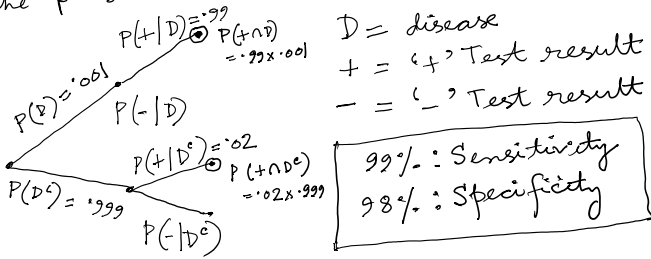 the p
P(+|D)=.99
P(+∩D)
=.99x.001
P(D)=.001
P(-|D)
P(+|Dᶜ)=.02
P(+∩Dᶜ)
=.02x.999
P(Dᶜ)=.999
P(-|Dᶜ)
D = disease
+ = '+' Test result
- = '-' Test result
99%: Sensitivity
98%: Specificity